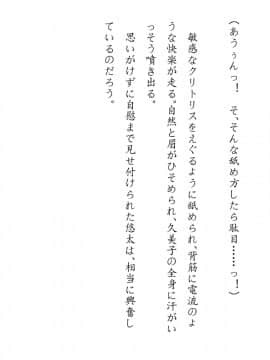 (あうぅんっ！　そ、そんな舐め方したら駄目……っ！)
　敏感なクリトリスをえぐるように舐められ、背筋に電流のよ
うな快楽が走る。自然と眉がひそめられ、久美子の全身に汗がい
っそう噴き出る。
　思いがけずに自慰まで見せ付けられた悠太は、相当に興奮し
ているのだろう。